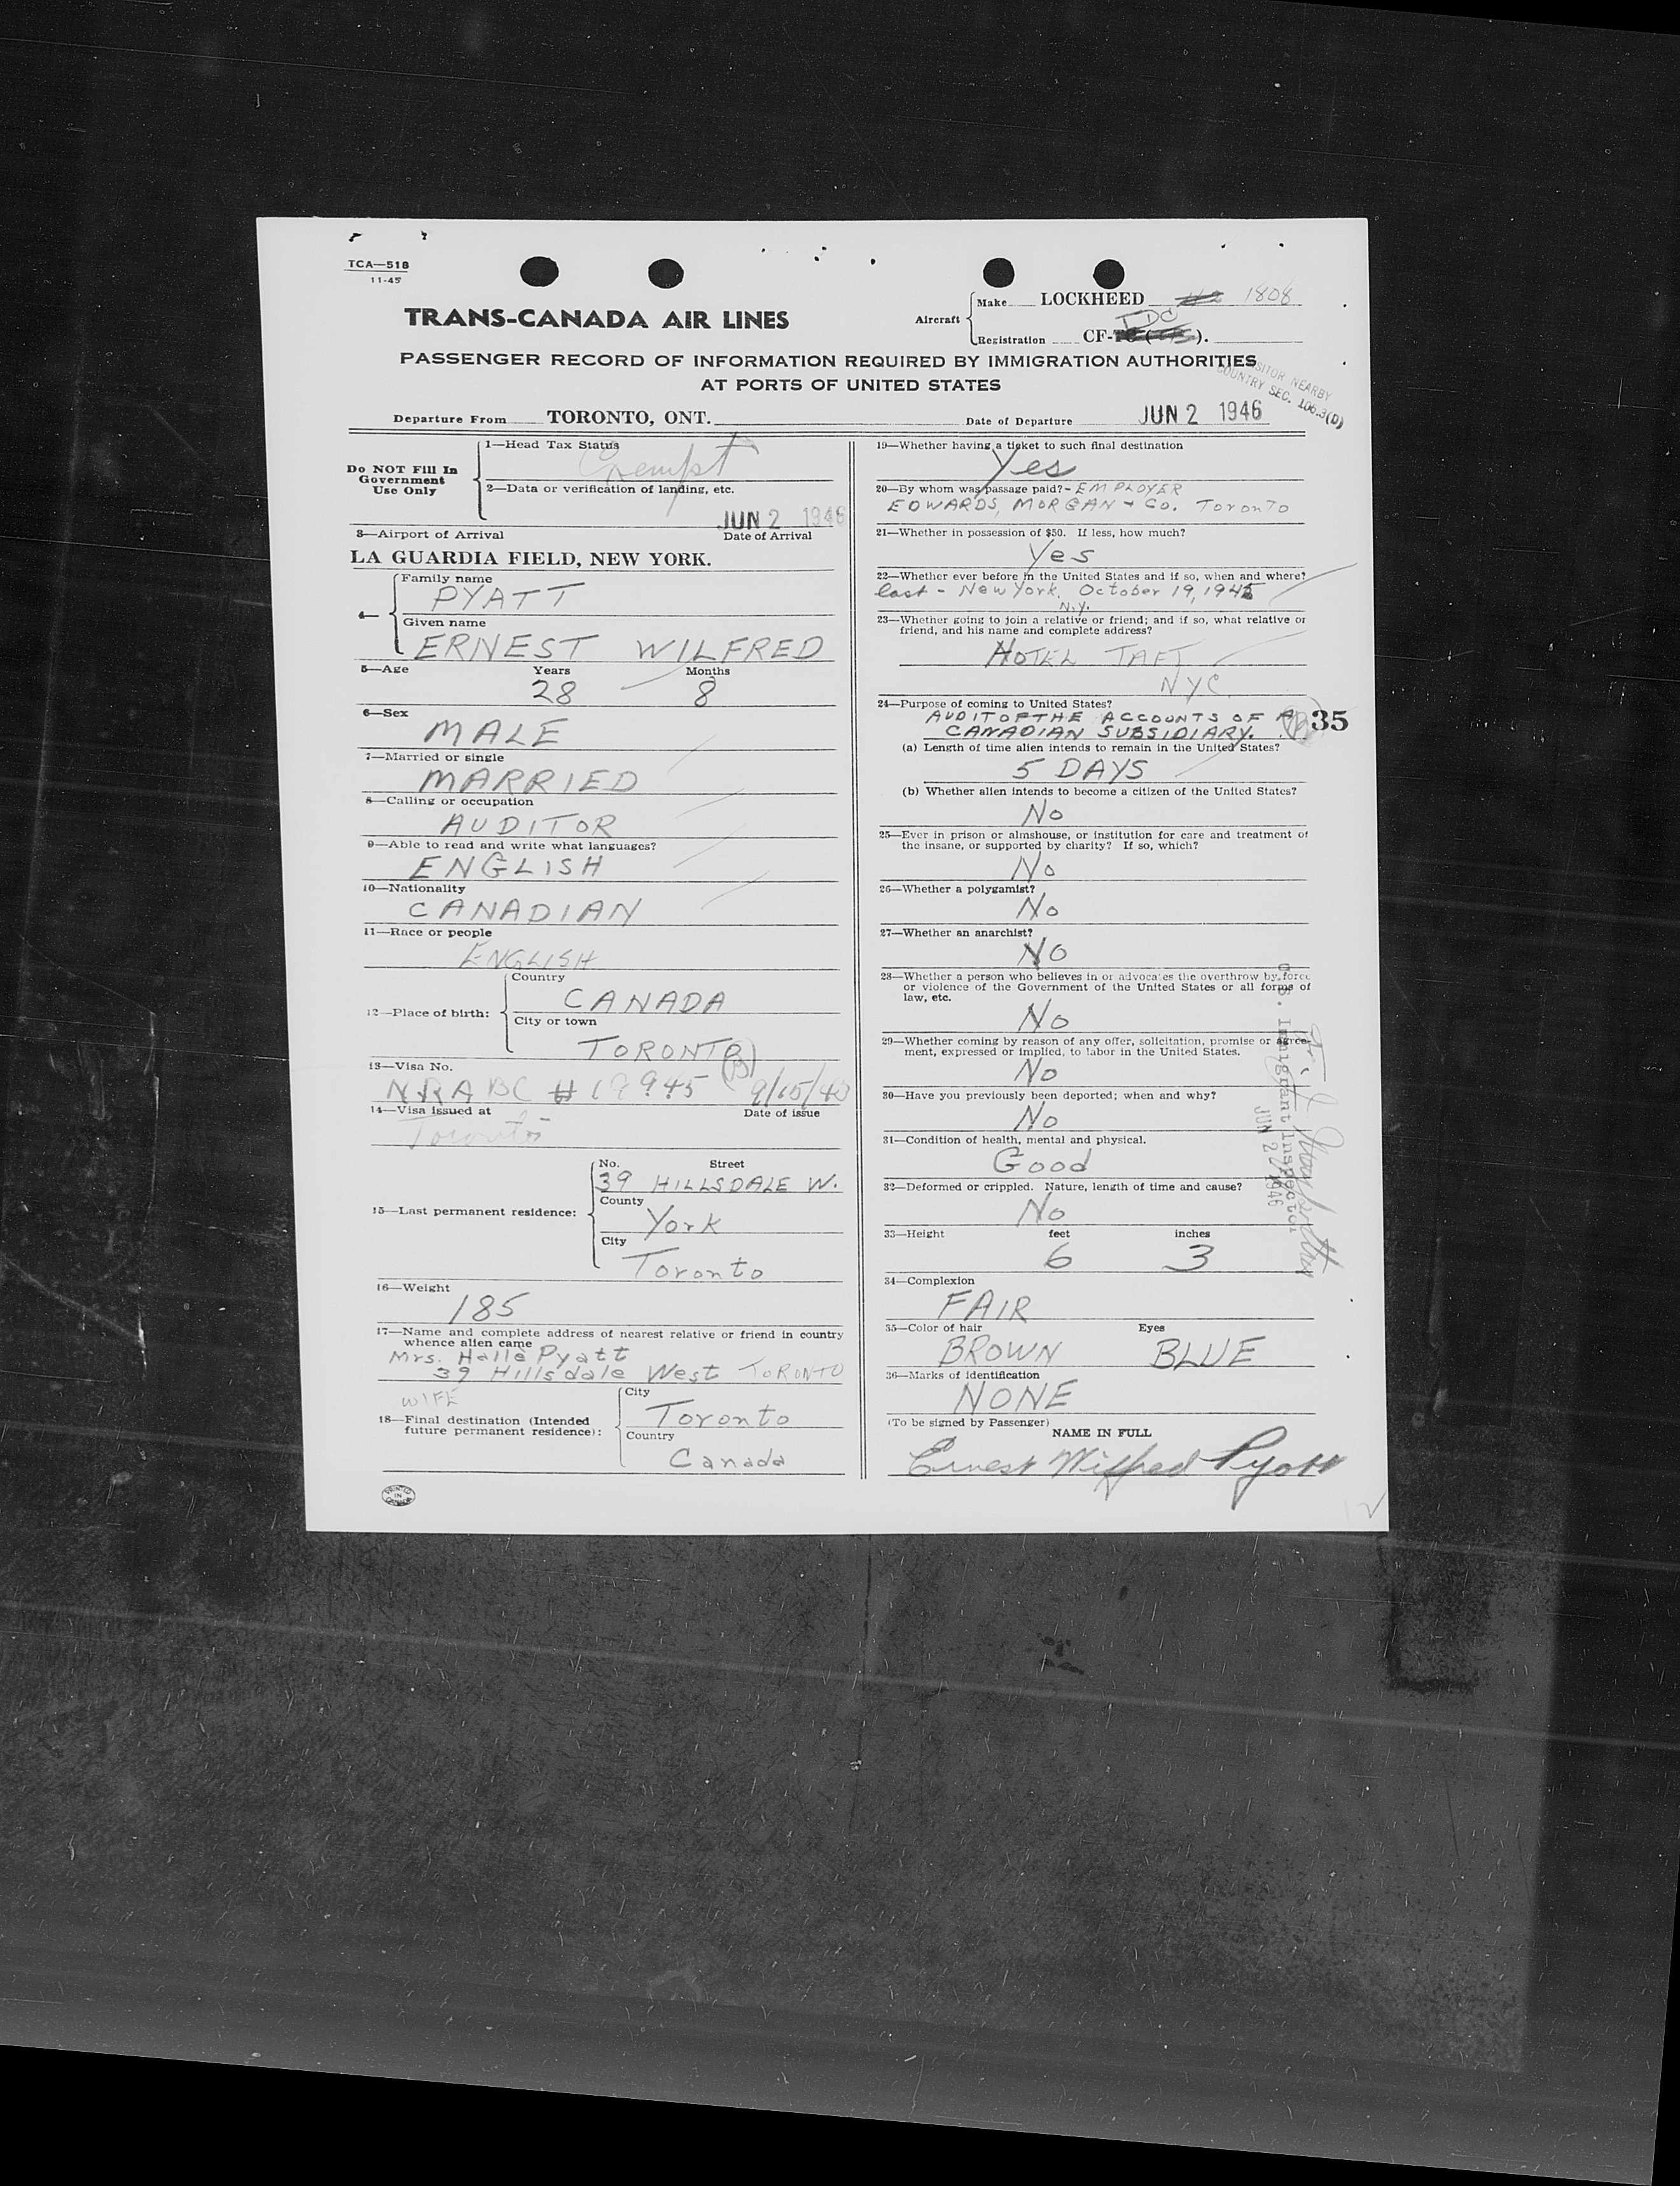 TCA—518
11-45
TRANS-CANADA AIR LINES
Aircraft
Make LOCKHEED 1808
Registration CF-
PASSENGER RECORD OF INFORMATION REQUIRED BY IMMIGRATION AUTHORITIES
AT PORTS OF UNITED STATES
VISITOR NEARBY
COUNTRY SEC. 106.3(D)
Departure From TORONTO, ONT. Date of Departure JUN 2 1946
Do NOT Fill In
Government
Use Only
1—Head Tax Status
Exempt
2—Data or verification of landing, etc.
JUN 2 1946
3—Airport of Arrival Date of Arrival
LA GUARDIA FIELD, NEW YORK.
Family name
PYATT
4—
Given name
ERNEST WILFRED
5—Age Years Months
28 8
6—Sex
MALE
7—Married or single
MARRIED
8—Calling or occupation
AUDITOR
9—Able to read and write what languages?
ENGLISH
10—Nationality
CANADIAN
11—Race or people
ENGLISH
12—Place of birth:
Country
CANADA
City or town
TORONTO
13—Visa No.
NRABC # 19945 9/15/43
14—Visa issued at Date of issue
Toronto
15—Last permanent residence:
No. Street
39 HILLSDALE W.
County
York
City
Toronto
16—Weight
185
17—Name and complete address of nearest relative or friend in country
whence alien came
Mrs. Halle Pyatt
39 Hillsdale West TORONTO
WIFE
18—Final destination (Intended
future permanent residence):
City
Toronto
Country
Canada
PRINTED
IN
CANADA
19—Whether having a ticket to such final destination
Yes
20—By whom was passage paid? - EMPLOYER
EDWARDS, MORGAN + Co. Toronto
21—Whether in possession of $50. If less, how much?
Yes
22—Whether ever before in the United States and if so, when and where?
last - New York, October 19, 1945
N.Y.
23—Whether going to join a relative or friend; and if so, what relative or
friend, and his name and complete address?
HOTEL TAFT
NYC
24—Purpose of coming to United States?
AUDIT OF THE ACCOUNTS OF A
CANADIAN SUBSIDIARY.
35
(a) Length of time alien intends to remain in the United States?
5 DAYS
(b) Whether alien intends to become a citizen of the United States?
No
25—Ever in prison or almshouse, or institution for care and treatment of
the insane, or supported by charity? If so, which?
No
26—Whether a polygamist?
No
27—Whether an anarchist?
NO
28—Whether a person who believes in or advocates the overthrow by force
or violence of the Government of the United States or all forms of
law, etc.
No
29—Whether coming by reason of any offer, solicitation, promise or agree-
ment, expressed or implied, to labor in the United States.
No
30—Have you previously been deported; when and why?
No
31—Condition of health, mental and physical.
Good
32—Deformed or crippled. Nature, length of time and cause?
No
33—Height feet inches
6 3
34—Complexion
FAIR
35—Color of hair Eyes
BROWN BLUE
36—Marks of identification
NONE
(To be signed by Passenger)
NAME IN FULL
Ernest Wilfred Pyatt
U.S. Immigrant Inspector
JUN 2 1946